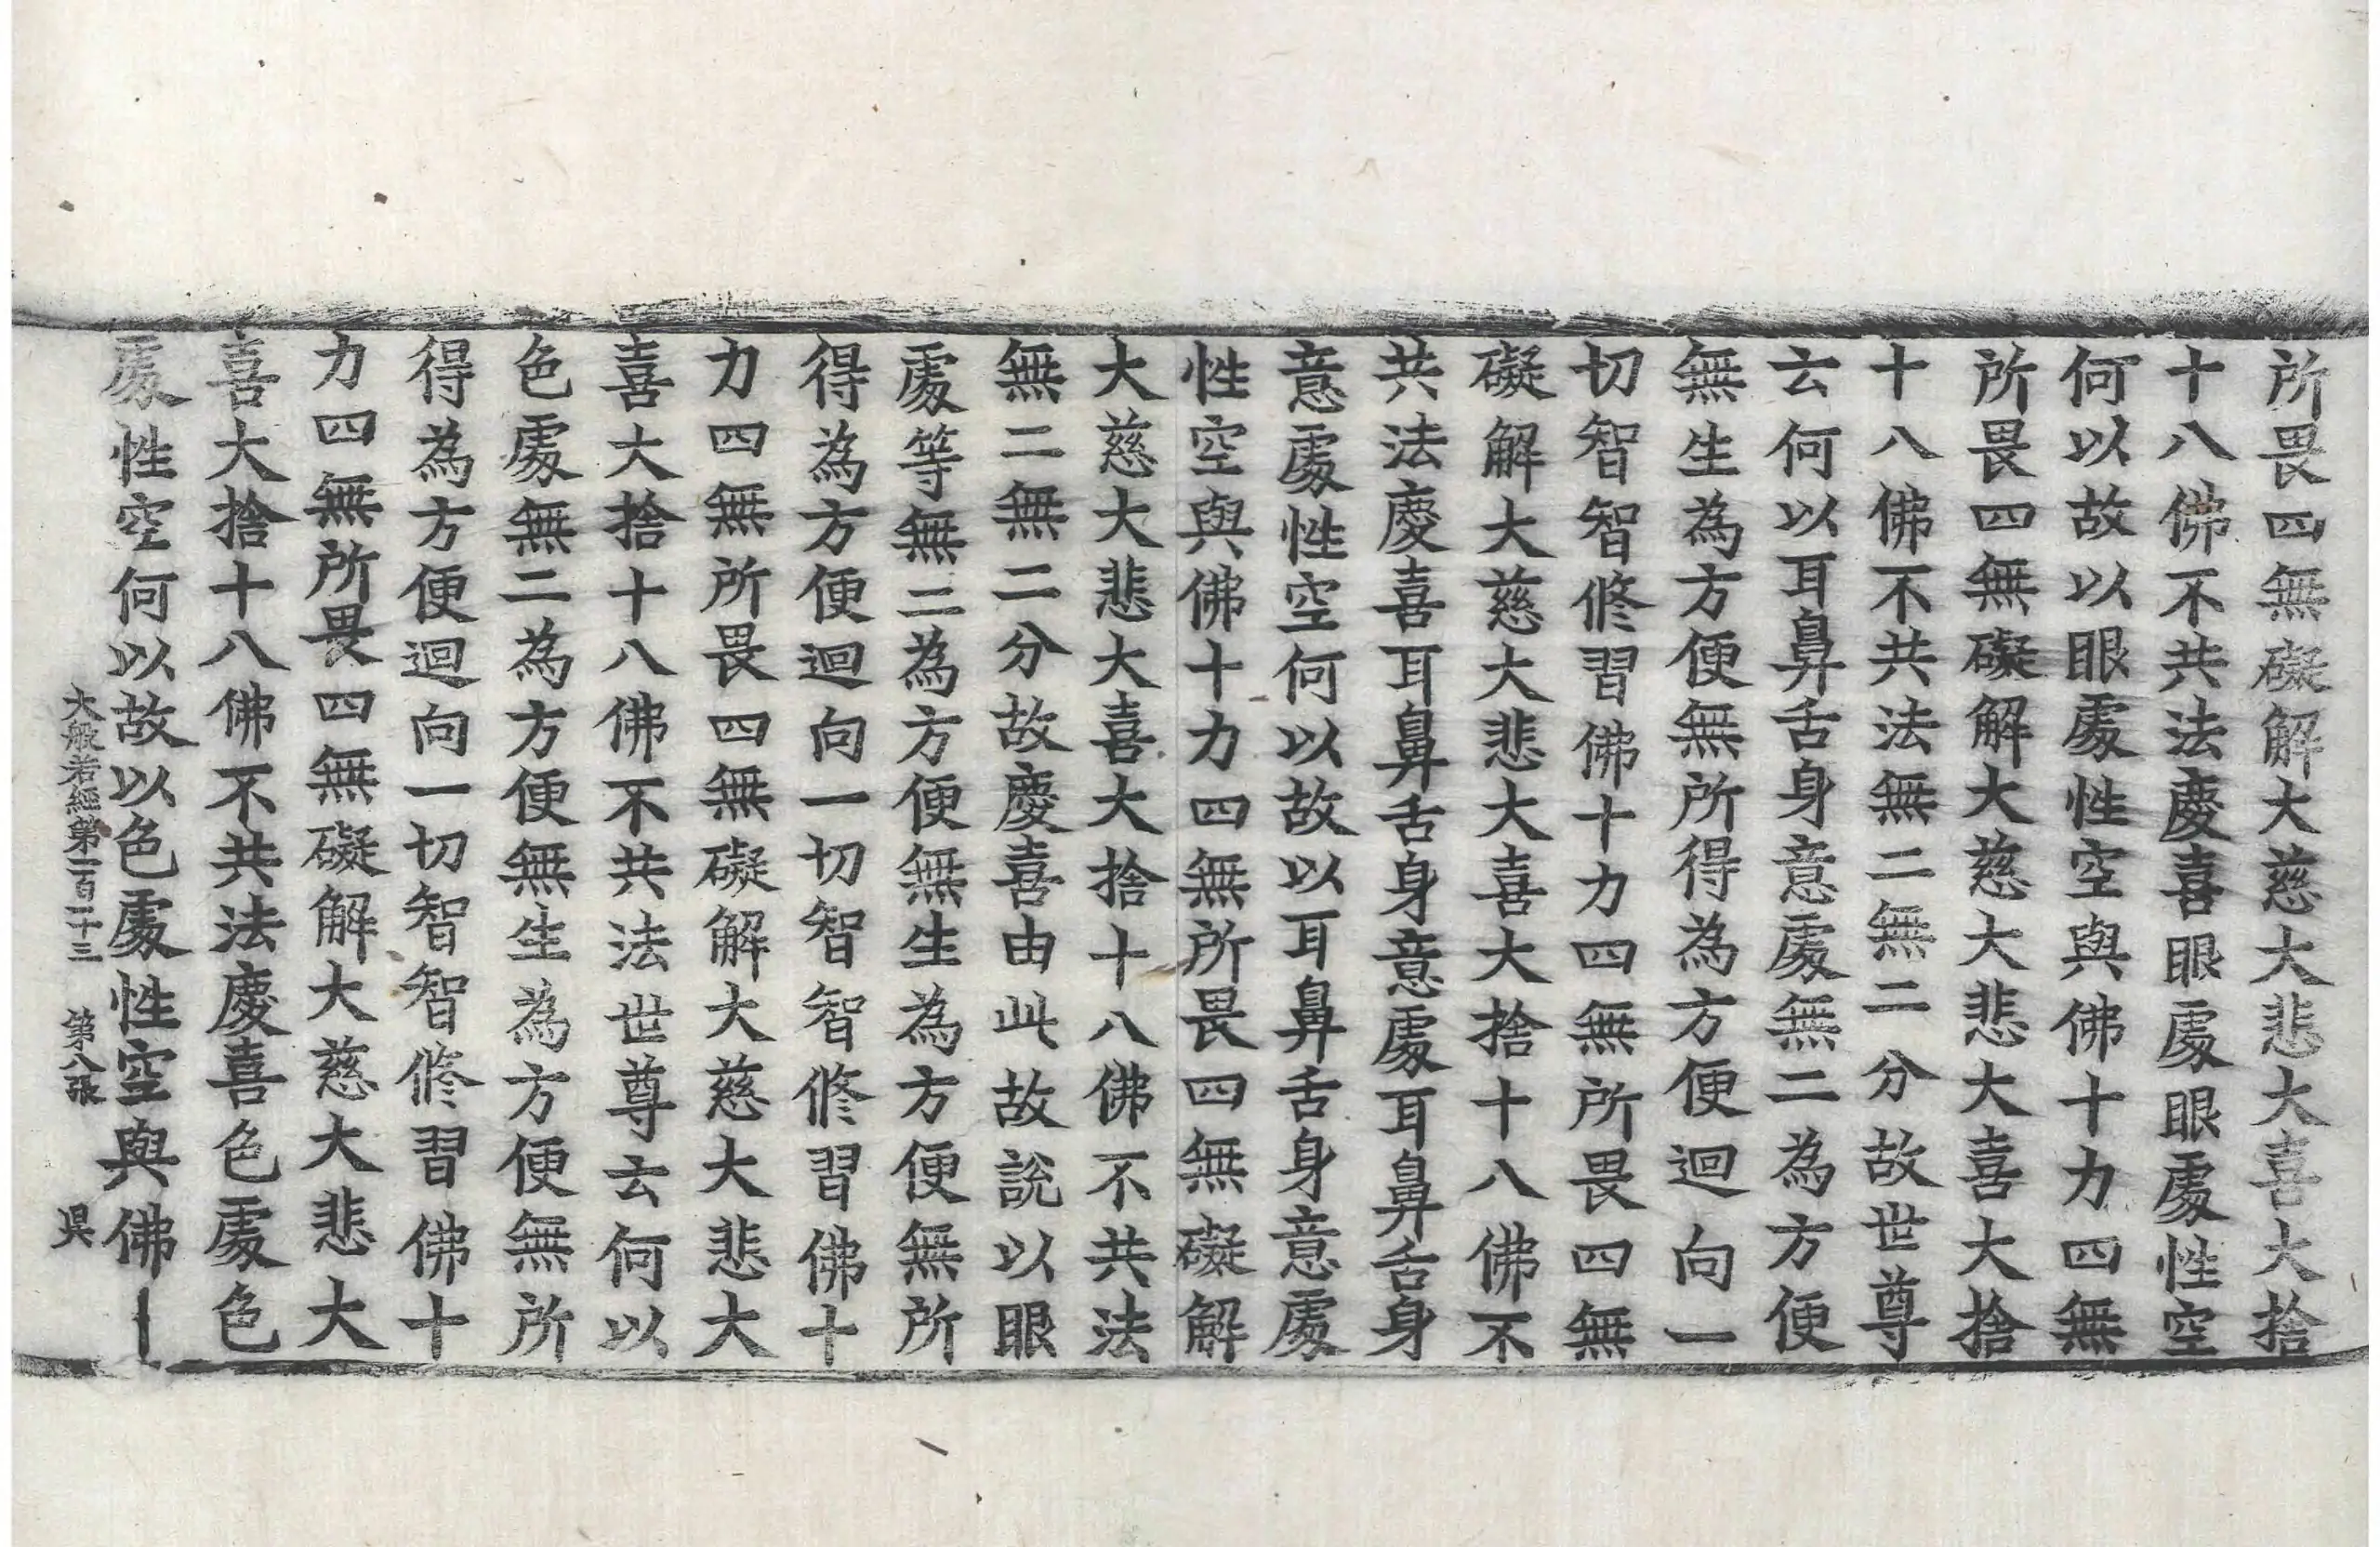 所畏四無礙解大慈大悲大喜大捨
十八佛不共法慶喜眼處眼處性空
何以故以眼處性空與佛十力四無
所畏四無礙解大慈大悲大喜大捨
十八佛不共法無二無二分故世尊
云何以耳鼻舌身意處無二為方便
無生為方便無所得為方便迴向一
切智智修習佛十力四無所畏四無
礙解大慈大悲大喜大捨十八佛不
共法慶喜耳鼻舌身意處耳鼻舌身
意處性空何以故以耳鼻舌身意處
性空與佛十力四無所畏四無礙解
大慈大悲大喜大捨十八佛不共法
無二無二分故慶喜由此故說以眼
處等無二為方便無生為方便無所
得為方便迴向一切智智修習佛十
力四無所畏四無礙解大慈大悲大
喜大捨十八佛不共法世尊云何以
色處無二為方便無生為方便無所
得為方便迴向一切智智修習佛十
力四無所畏四無礙解大慈大悲大
喜大捨十八佛不共法慶喜色處色
處性空何以故以色處性空與佛
大般若經第一百二十三 第八張 昃